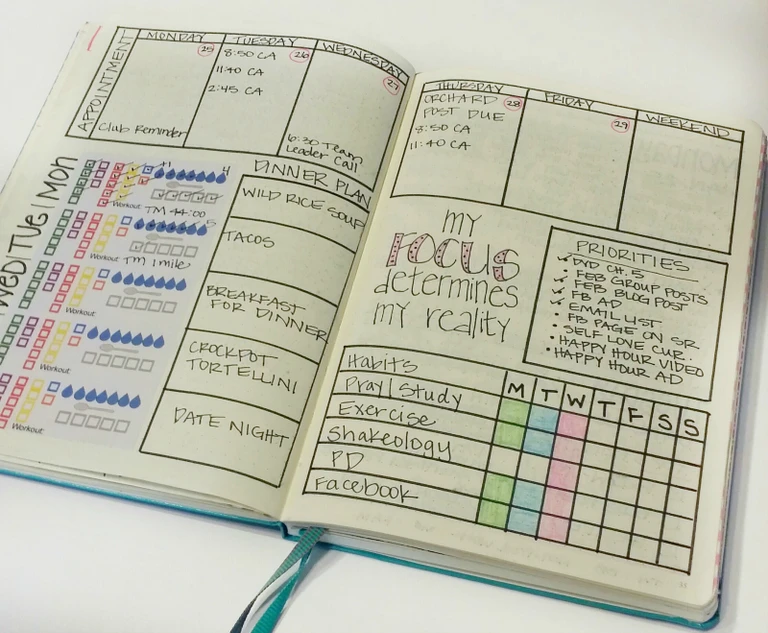 APPOINTMENT
MONDAY
25
Club Reminder
TUESDAY
26
8:50 CA
11:40 CA
2:45 CA
WEDNESDAY
27
6:30 Team
Leader Call
DINNER PLAN
WILD RICE SOUP
TACOS
BREAKFAST
FOR DINNER
CROCKPOT
TORTELLINI
DATE NIGHT
Mon
Tue
Wed
4
Workout:
TM
:00
5
Workout:
TM 1 mile
Workout:
Workout:
Workout:
THURSDAY
28
ORCHARD
POST DUE
8:50 CA
11:40 CA
FRIDAY
29
WEEKEND
my
FOCUS
determines
my reality
PRIORITIES
DVD CH. 5
FEB GROUP POSTS
FEB BLOG POST
FB AD
EMAIL LIST
FB PAGE ON SR.
SELF LOVE CUR.
HAPPY HOUR VIDEO
HAPPY HOUR AD
Habits
M T W T F S S
Pray/Study
Exercise
Shakeology
PD
Facebook